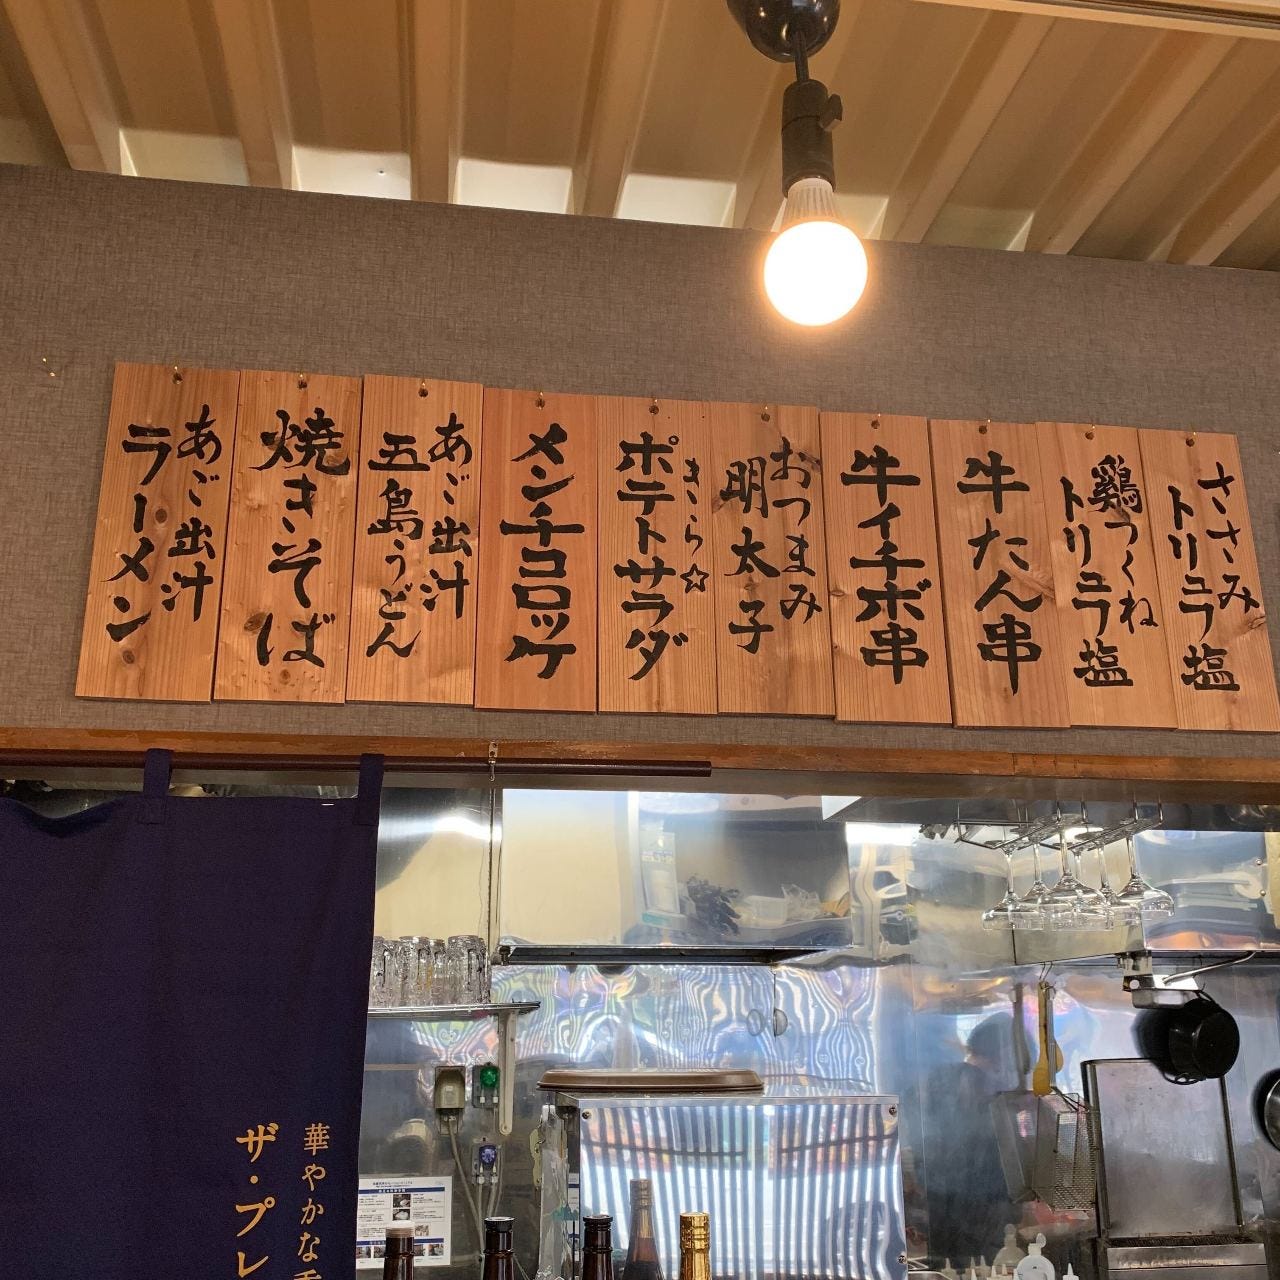 ささみ
トリュフ塩
鶏つくね
トリュフ塩
牛たん串
牛イチボ串
おつまみ
明太子
きら☆
ポテトサラダ
メンチコロッケ
あご出汁
五島うどん
焼きそば
あご出汁
ラーメン
華やかな
ザ・プレ